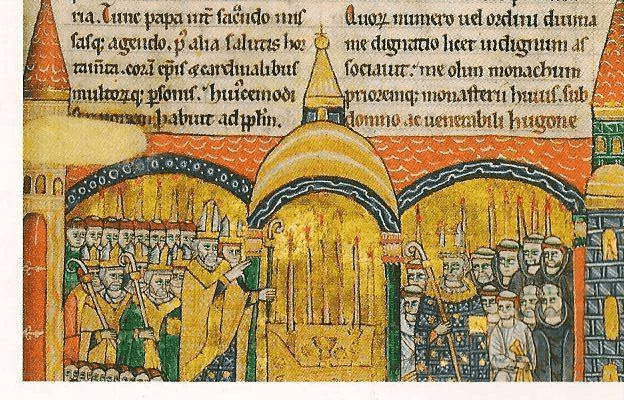 ria. Tunc papa int̄ sac̄ndo mis
sasq; agendo. p̄ alia salutis hor
tam̄ta. corā ep̄is & cardinalibus
multorq; p̱sonis. huicemodi
habuit ad pp̄lm.
Quoꝝ numero uel ordini diuina
me dignatio licet indignum as
sociauit. me olim monachum
prioremq; monasterii huius. sub
domno ac uenerabili hugone